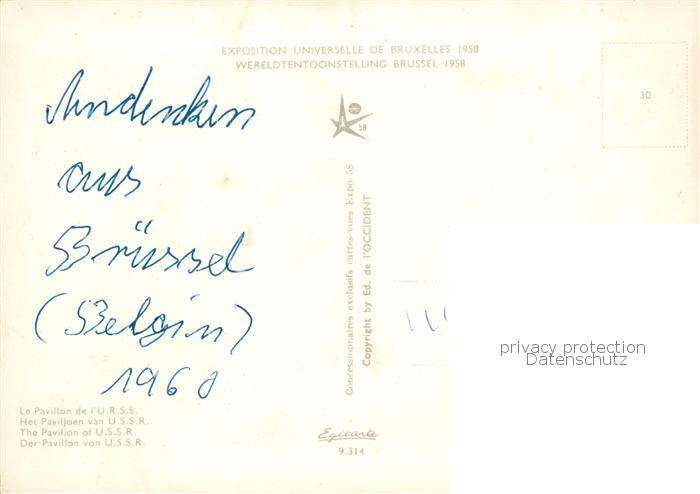 EXPOSITION UNIVERSELLE DE BRUXELLES 1958
WERELDTENTOONSTELLING BRUSSEL 1958
30
58
Andenken
aus
Brüssel
(Belgin)
1960
Concessionnaires exclusifs cartes-vues Expo 58
Copyright by Ed. de l'OCCIDENT
privacy protection
Datenschutz
Le Pavillon de l'U.R.S.S.
Het Paviljoen van U.S.S.R.
The Pavilion of U.S.S.R.
Der Pavillon von U.S.S.R.
Egicarte
9.314